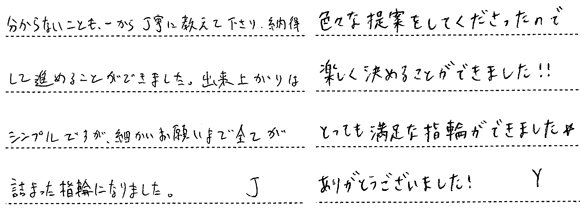 分からないことも、一から丁寧に教えて下さり、納得
して進めることができました。出来上がりは
シンプルですが、細かいお願いまで全てが
詰まった指輪になりました。 J
色々な提案をしてくださったので
楽しく決めることができました!!
とっても満足な指輪ができました☆
ありがとうございました! Y